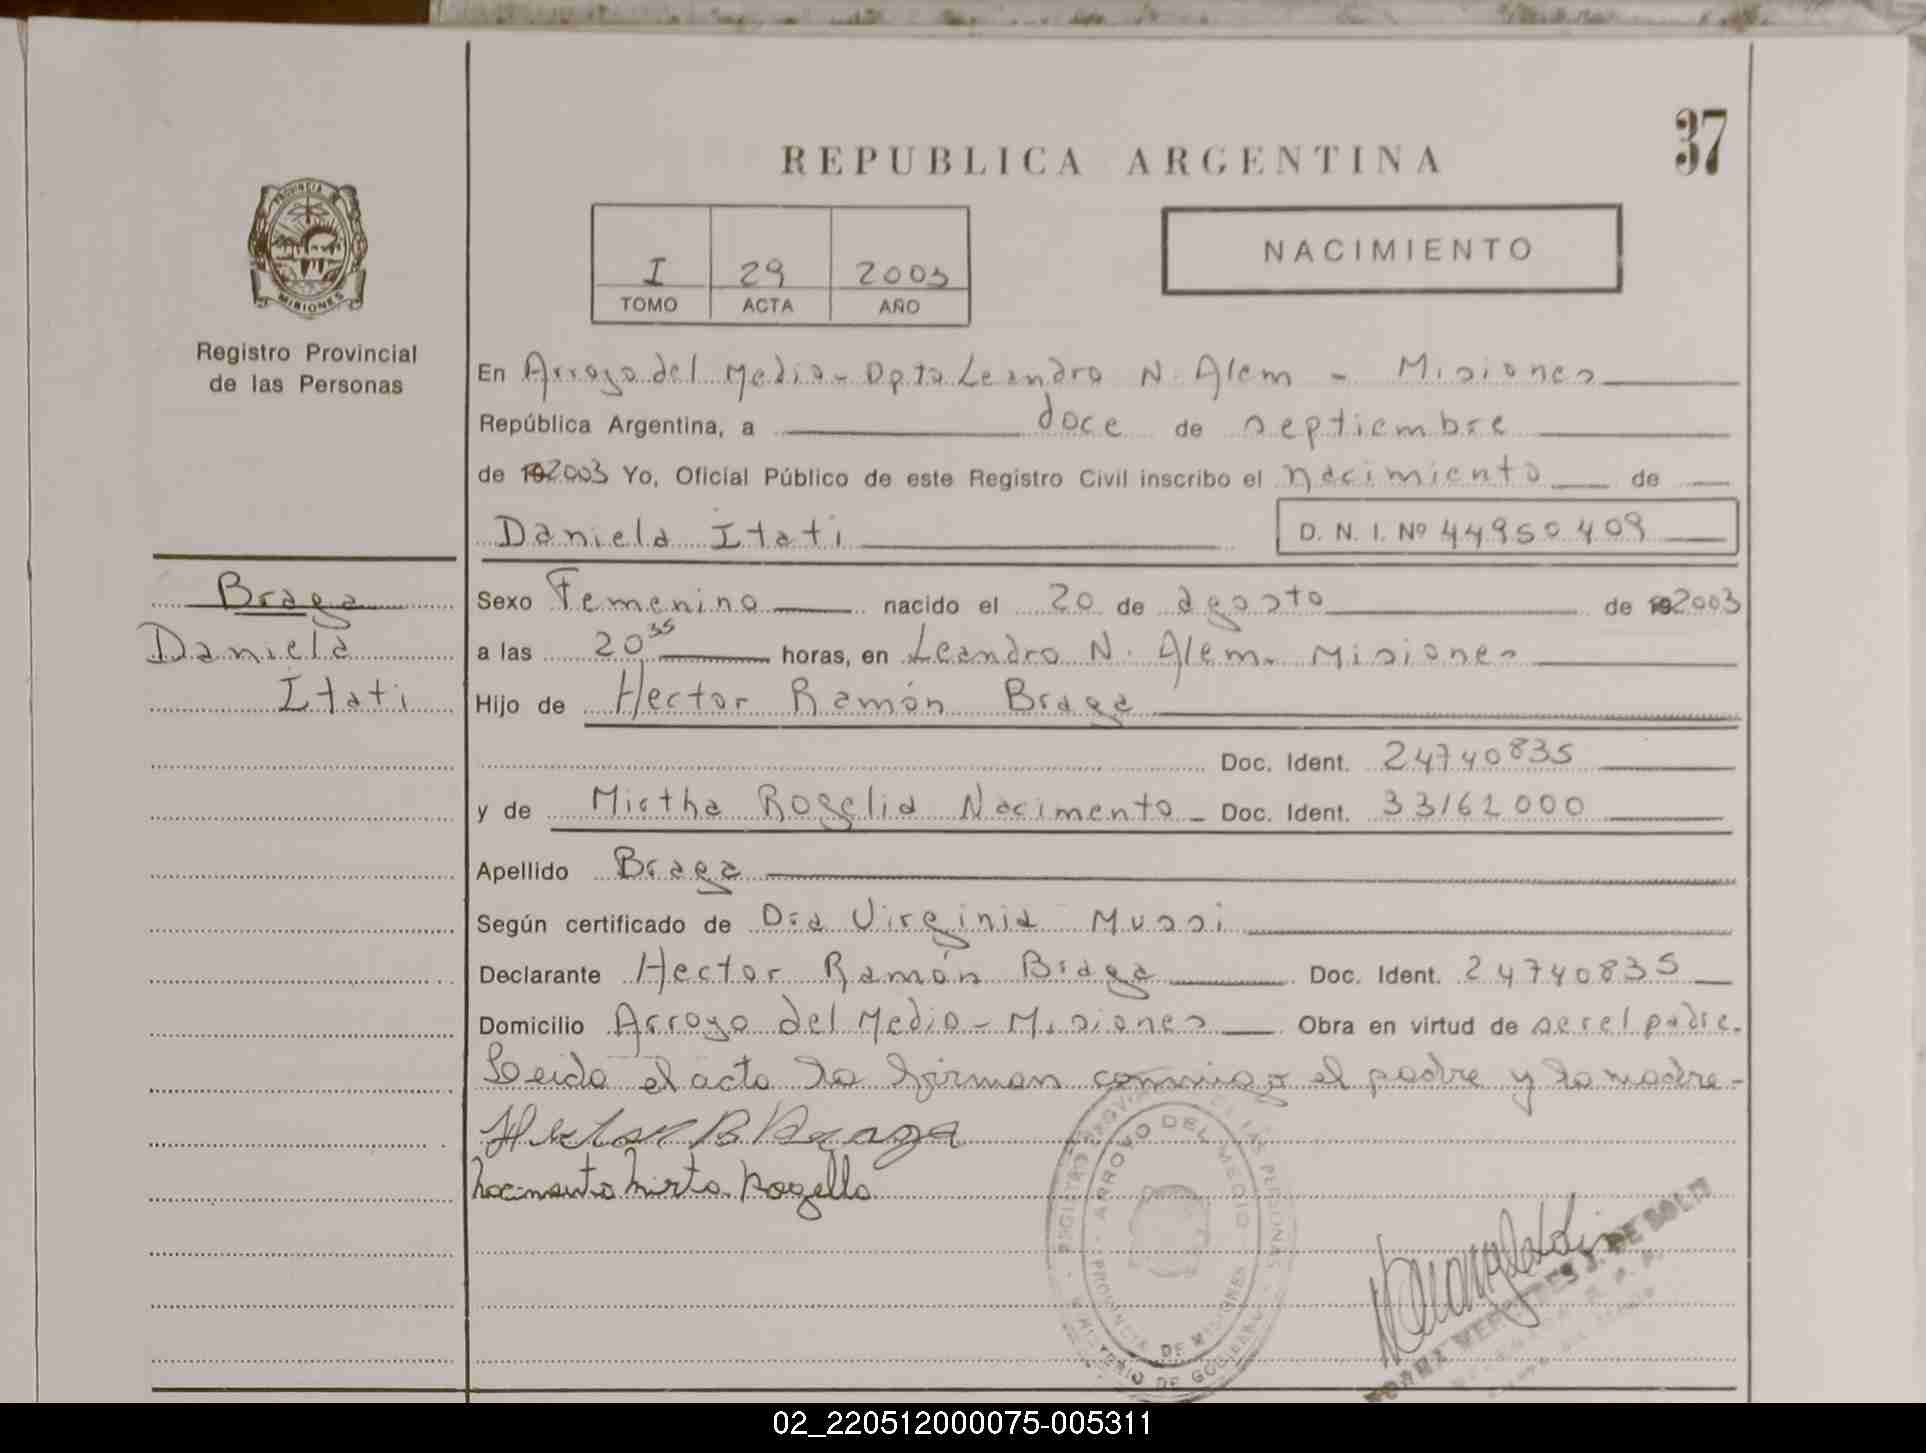 37
REPUBLICA ARGENTINA
PROVINCIA DE
MISIONES
Registro Provincial
de las Personas
I 29 2003
TOMO ACTA AÑO
NACIMIENTO
En Arroyo del Medio - Dpto Leandro N. Alem - Misiones
República Argentina, a doce de septiembre
de 192003 Yo, Oficial Público de este Registro Civil inscribo el nacimiento de
Daniela Itati D. N. I. Nº 44950409
Braga
Daniela
Itati
Sexo Femenino nacido el 20 de agosto de 192003
a las 20 35 horas, en Leandro N. Alem - Misiones
Hijo de Hector Ramón Braga
Doc. Ident. 24740835
y de Mirtha Rogelia Nacimento - Doc. Ident. 33162000
Apellido Braga
Según certificado de Dra Virginia Mussi
Declarante Hector Ramón Braga Doc. Ident. 24740835
Domicilio Arroyo del Medio - Misiones Obra en virtud de ser el padre.
Leida el acta la firman conmigo el padre y la madre -
Hector R Braga
Nacimento Mirta Rogelia
REGISTRO PROVINCIAL DE LAS PERSONAS
ARROYO DEL MEDIO
PROVINCIA DE MISIONES
MINISTERIO DE GOBIERNO
J. DE SOLIS
02_220512000075-005311